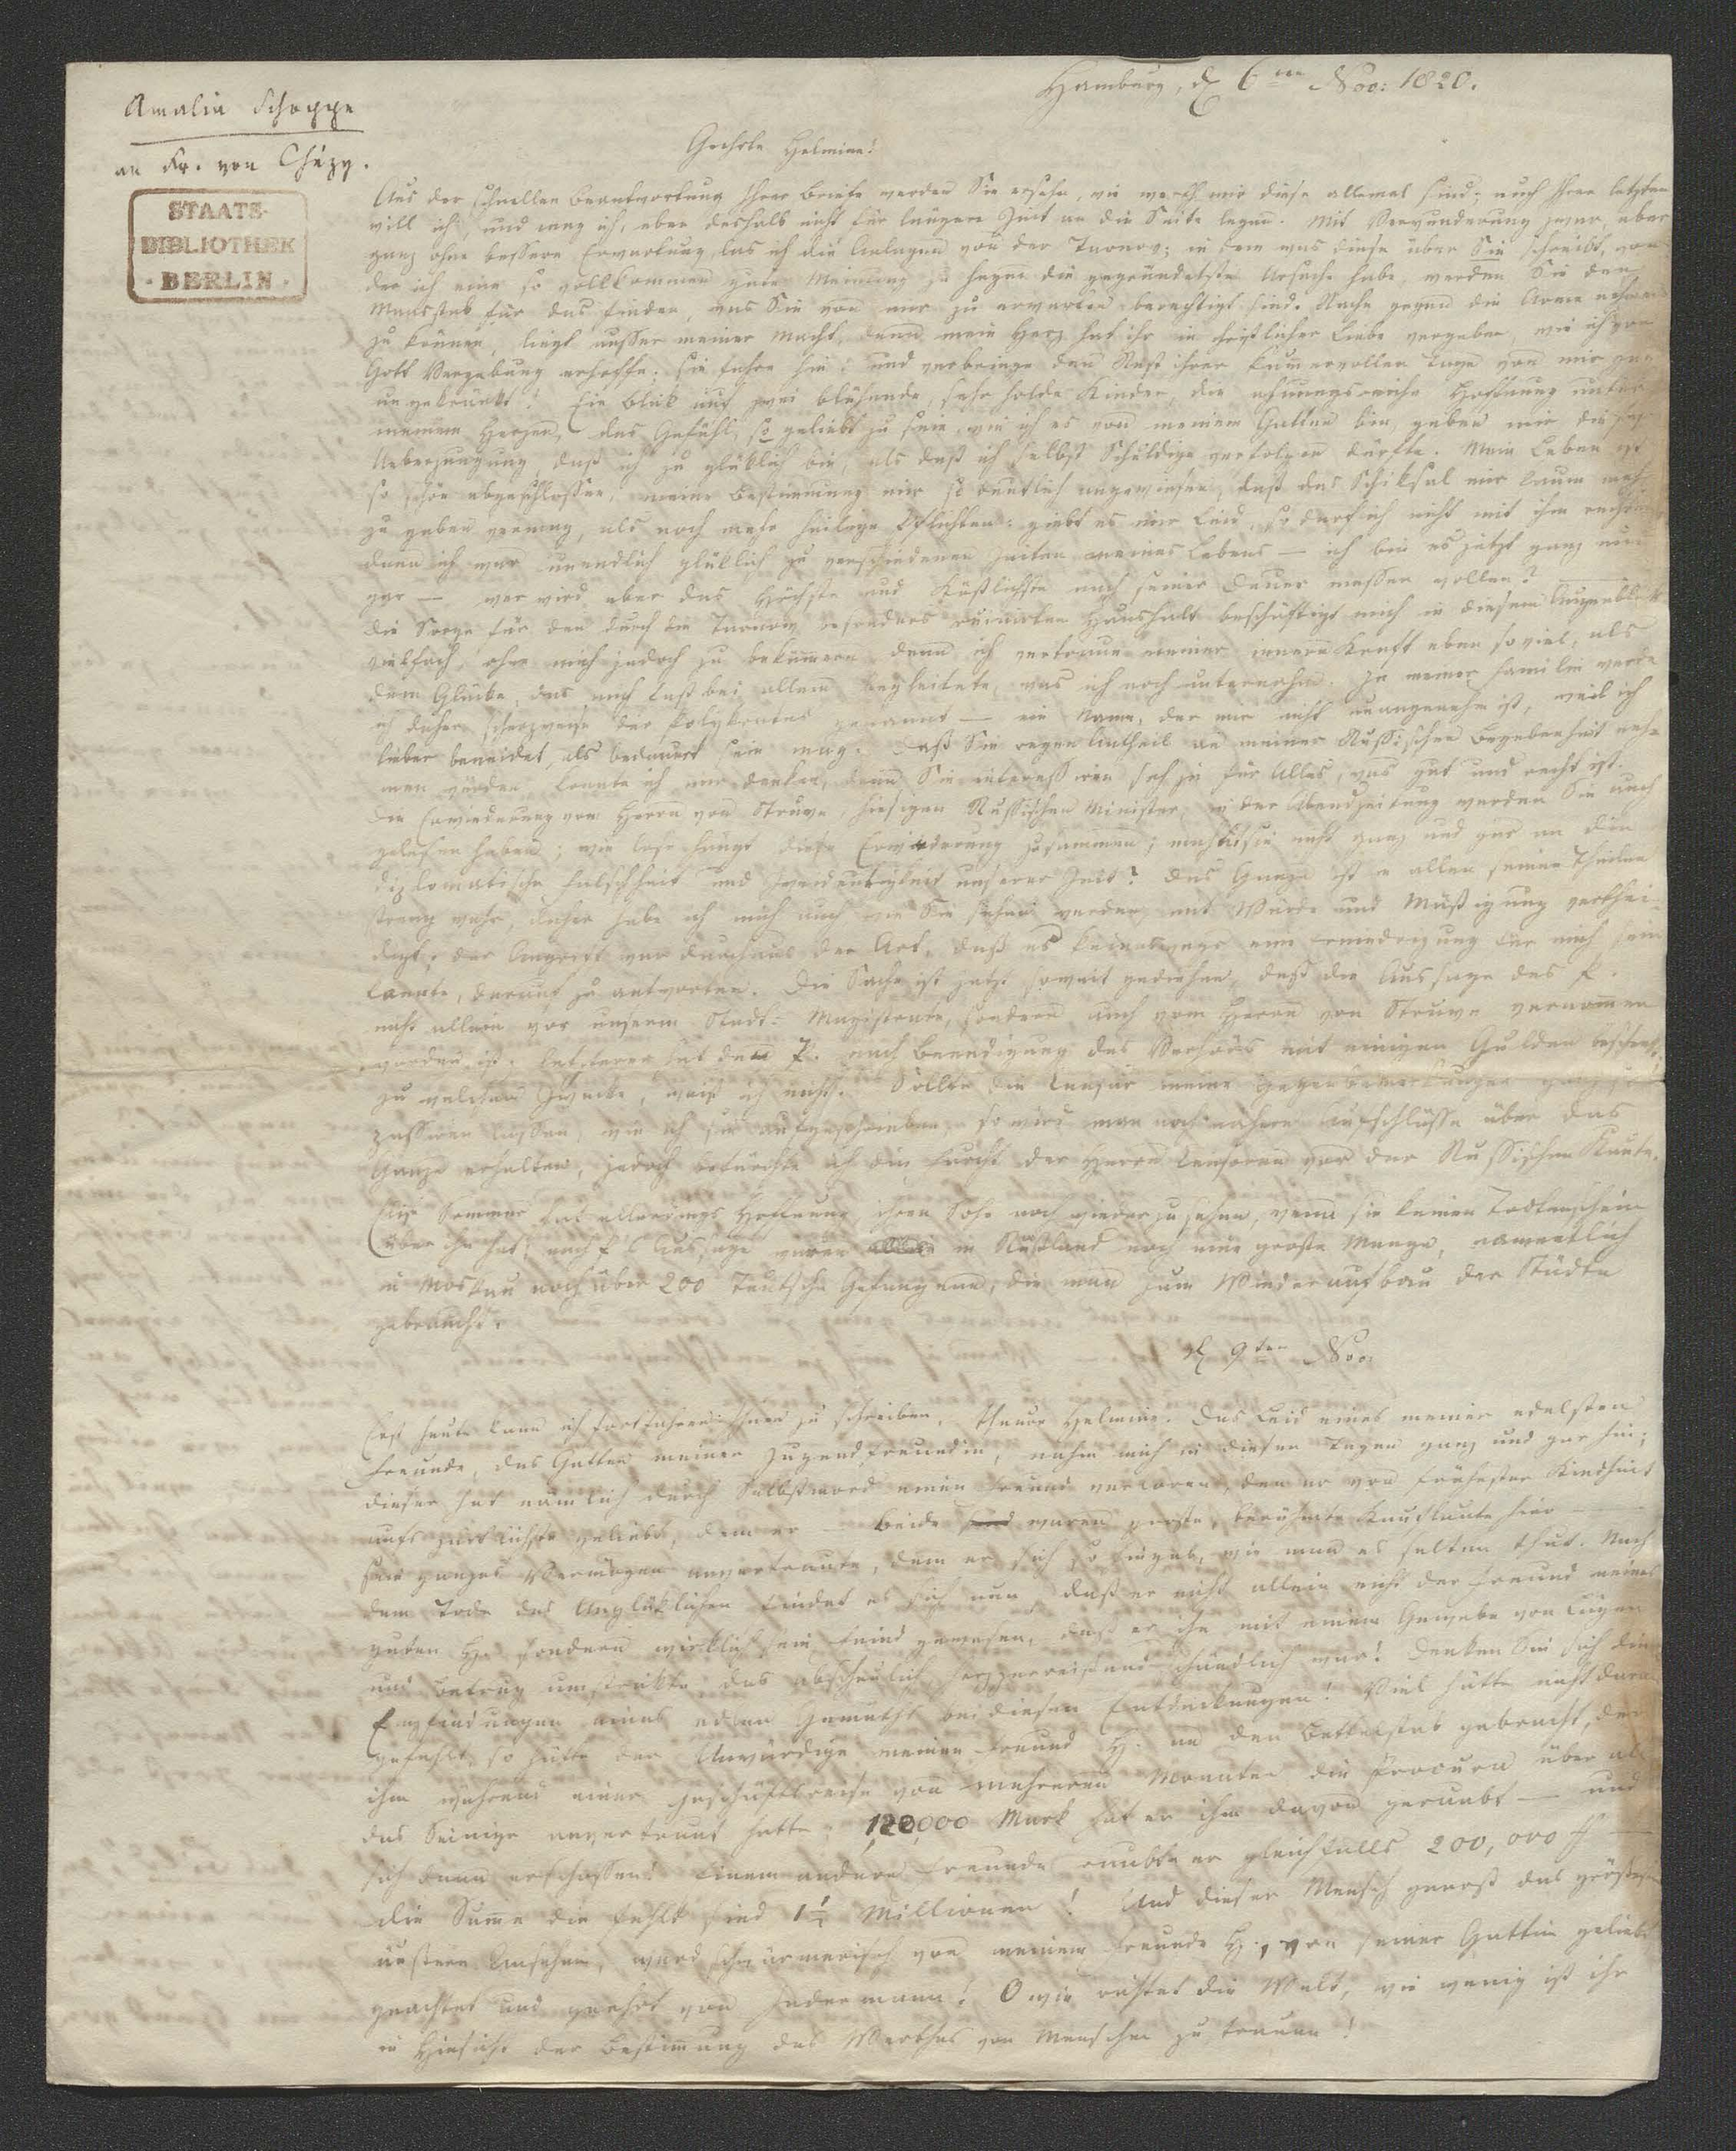 Amalia Schoppe
an Fr. von Chézy.
STAATS-
BIBLIOTHEK
· BERLIN ·
Hamburg, d. 6ten Nov: 1820.
Geehrte Helmine!
Aus der schnellen Beantwortung Ihrer Briefe werden Sie ersehn, wie werth mir diese allemal sind; auch Ihren letzten
will ich, und mag ich, eben deshalb nicht für längere Zeit an die Seite legen. Mit Verwunderung zwar, aber
ganz ohne bessere Erwartung, las ich die Anlagen von der Tarnow; in dem was diese über Sie schreibt, von
der ich eine so vollkommen gute Meinung zu hegen die gegründetste Ursache habe, werden Sie den
Maasstab für das finden, was Sie von mir zu erwarten berechtigt sind. Rache gegen die Arme nehmen
zu können, liegt ausser meiner Macht, denn mein Herz hat ihr in christlicher Liebe vergeben, wie ich von
Gott Vergebung erhoffe; sie fahre hin! und verbringe den Rest ihrer kumervollen Tage von mir ganz
ungekränkt! Ein Blik auf zwei blühende, sehr holde Kinder, die ahnungsreiche Hoffnung unter
meinem Herzen, das Gefühl, so geliebt zu sein, wie ich es von meinem Gatten bin, geben mir die
Ueberzeugung, daß ich zu glüklich bin, als daß ich selbst Schuldige verfolgen dürfte. Mein Leben ist
so schön abgeschlossen, meine Bestimmung mir so deutlich angewiesen, daß das Schiksal mir kaum mehr
zu geben vermag, als noch mehr heilige Pflichten; giebt es mir Leid, so darf ich nicht mit ihm rechten
denn ich war unendlich glüklich zu verschiedenen Zeiten meines Lebens — ich bin es jetzt ganz und
gar — wer wird aber das Höchste und Köstlichste nach seiner Dauer messen wollen? —
Die Sorge für den durch die Tarnow besonders ruinirten Haushalt beschäftigt mich in diesem Augenblik
vielfach, ohne mich jedoch zu bekümmern, denn ich vertraue meiner innern Kraft eben so viel, als
dem Glüke, das mich fast bei allem begleitete, was ich noch unternahm. In meiner Familie werde
ich daher scherzweise der Polykrates genannt — ein Name, der mir nicht unangenehm ist, weil ich
lieber beneidet, als bedauert sein mag. Daß Sie regen Antheil an meiner Russischen Begebenheit neh-
men würden, konnte ich mir denken, denn Sie interessiren sich ja für Alles, was gut und recht ist.
Die Erwiederung vom Herrn von Struve, hiesigen Russischen Minister, in der Abendzeitung werden Sie auch
gelesen haben; wie lose hängt diese Erwiederung zusammen; mahnt sie nicht ganz und gar an die
diplomatische Falschheit und Zweideutigkeit unserer Zeit? Das Ganze ist in allen seinen Theilen
streng wahr, daher habe ich mich auch wie Sie sehen werden, mit Würde und Mäßigung verthei-
digt; der Angriff war durchaus der Art, daß es keineswegs eine Erniedrigung für mich sein
konnte, darauf zu antworten. Die Sache ist jetzt soweit gediehen, daß die Aussage des P.
nicht allein vor unserm Stadt-Magistrate, sondern auch vom Herrn von Struve vernommen
worden ist. Letzterer hat den P. nach Beendigung des Verhörs mit einigen Gulden beschenkt,
zu welchem Zweke, weiß ich nicht. Sollte die Censur meine Gegenbemerkungen ganz so
passiren lassen, wie ich sie aufgeschrieben, so wird man noch nähere Aufschlüsse über das
Ganze erhalten, jedoch befürchte ich die Furcht der Herrn Censoren vor der Russischen Knute.
Elise Sommer hat allerdings Hoffnung, ihren Sohn noch wieder zu sehen, wenn sie keinen Todtenschein
über ihn hat; nach P's Aussage waren in Rußland noch eine große Menge, namentlich
in Moskau noch über 200 Teutsche Gefangene, die man zum Wiederaufbau der Städte
gebraucht.
d. 9ten Nov:
Erst heute kann ich fortfahren Ihnen zu schreiben, theure Helmine. Das Leid eines meiner edelsten
Freunde, des Gatten meiner Jugendfreundin, nahm mich in diesen Tagen ganz und gar hin;
dieser hat nämlich durch Selbstmord einen Freund verloren, den er von frühester Kindheit
aufs zärtlichste geliebt, dem er — Beide waren große, berühmte Kaufleute hier —
sein ganzes Vermögen anvertraute, dem er sich so hingab, wie man es selten thut. Nach
dem Tode des Unglüklichen findet es sich nun, daß er nicht allein nicht der Freund meines
guten H. sondern wirklich sein Feind gewesen, daß er ihn mit einem Gewebe von Lügen
und Betrug umstrikte, das abscheulich, herzzerreißend schändlich war! Denken Sie sich die
Empfindungen eines edlen Gemüths bei diesen Entdeckungen! Viel hätte nicht daran
gefehlt, so hätte der Unwürdige meinen Freund H. an den Bettelstab gebracht, der
ihm während einer Geschäftsreise von mehreren Monaten die Procura über all
das Seinige anvertraut hatte; 120,000 Mark hat er ihm davon geraubt — und
sich dann erschossen! Einem andern Freunde raubte er gleichfalls 200,000
die Summe die fehlt sind 1½ Millionen! Und dieser Mensch genoß das größeste
äußere Ansehen, ward schwärmerisch von meinem Freunde H., von seiner Gattin geliebt
geachtet und geehrt von Jedermann! O wie richtet die Welt, wie wenig ist ihr
in Hinsicht der Bestimmung des Werthes von Menschen zu trauen!